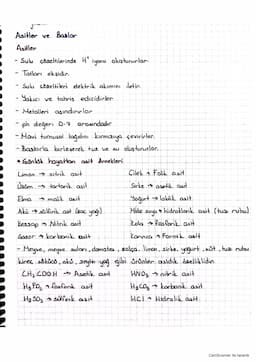 Asitler ve Bazlar
Asitler
- Sulu çözeltilerinde H⁺ iyonu oluştururlar.
- Tatları ekşidir.
- Sulu çözeltileri elektrik akımını iletir.
- Yakıcı ve tahriş edicidirler.
- Metalleri aşındırırlar.
- ph değeri 0-7 arasındadır.
- Mavi turnusol kağıdını kırmızıya çevirirler.
- Bazlarla birleşerek tuz ve su oluştururlar.
* Günlük hayattan asit örnekleri
Limon → sitrik asit Çilek → Folik asit
Üzüm → tartarik asit Sirke → asetik asit
Elma → malik asit Yoğurt → laktik asit
Akü → sülfürik asit (zaç yağı) Mide suyu → hidroklorik asit (tuz ruhu)
Kezzap → Nitrik asit Kola → Fosforik asit
Gazoz → karbonik asit Karınca → Formik asit
- Meyve, meyve suları, domates, salça, limon, sirke, yoğurt, süt, tuz ruhu
kireç sökücü, akü, zeytin yağ gibi ürünler asidik özelliklidir.
CH₃COOH → Asetik asit HNO₃ → nitrik asit
H₃PO₄ → fosforik asit H₂CO₃ → karbonik asit
H₂SO₄ → sülfürik asit HCl → Hidroklorik asit
CamScanner ile tarandı